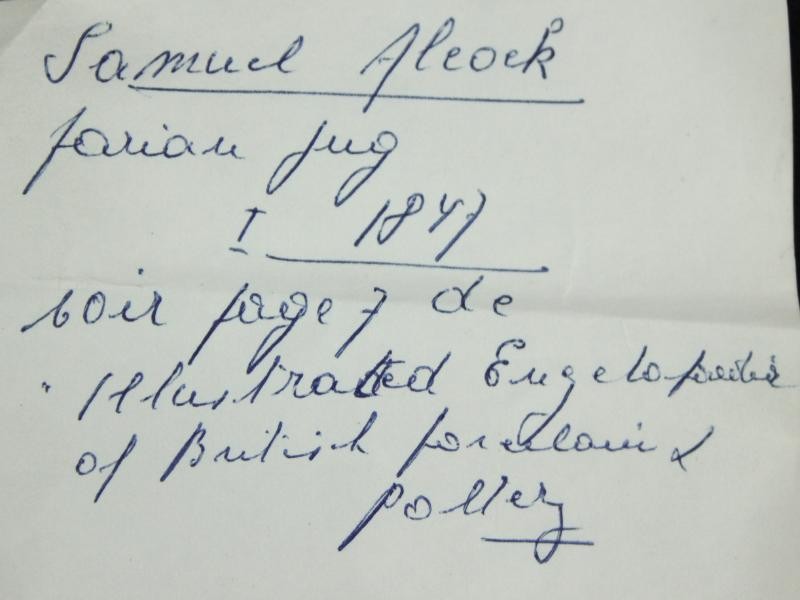 Samuel Alcock
parian jug
I 1847
voir page 7 de
"Illustrated Encyclopaedia
of British porcelain &
pottery